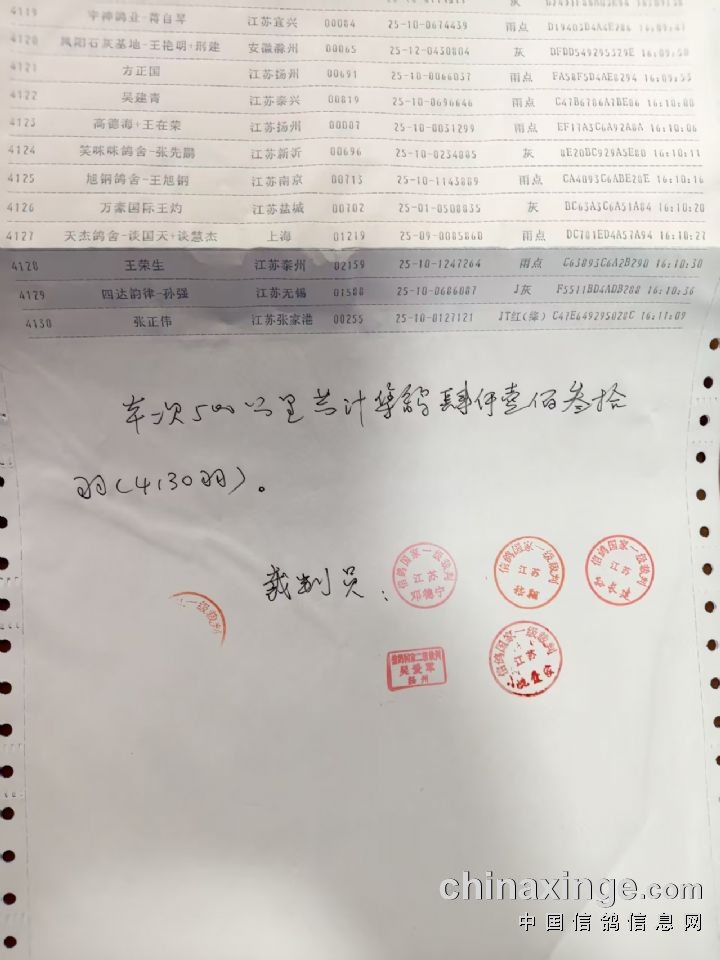 4119 江苏宜兴 00084 25-10-0674439 雨点 16:09:47
4120 凤阳石灰基地-王艳明+邢建 安徽滁州 00065 25-12-0430804 灰 DFDD549295329E 16:09:50
4121 方正国 江苏扬州 00691 25-10-0066037 雨点 FA58F5D4AE8294 16:09:53
4122 吴建青 江苏泰兴 00819 25-10-0696646 雨点 C47B6786A7BE86 16:10:00
4123 高德海+王在荣 江苏扬州 00007 25-10-0031299 雨点 EF17A3C6A92A0A 16:10:06
4124 笑咪咪鸽舍-张先鹏 江苏新沂 00696 25-10-0234885 灰 8E20BC929A5E80 16:10:11
4125 旭钢鸽舍-王旭钢 江苏南京 00713 25-10-1143889 雨点 CA4093C6ABE20E 16:10:16
4126 万豪国际王灼 江苏盐城 00702 25-01-0508835 灰 DC63A3C6A51A04 16:10:20
4127 天杰鸽舍-谈国天+谈慧杰 上海 01219 25-09-0085860 雨点 DC701ED4A57A94 16:10:27
4128 王荣生 江苏泰州 02159 25-10-1247264 雨点 C63893C6A2B290 16:10:30
4129 四达韵律-孙强 江苏无锡 01588 25-10-0686087 J灰 F5511BD4ADB288 16:10:36
4130 张正伟 江苏张家港 00255 25-10-0127121 JT红(绛) C47E649295028C 16:11:09
本次500公里共计集鸽肆仟壹佰叁拾
羽(4130羽)。
裁判员：
信鸽国家一级裁判
江苏
邓德宁
信鸽国家一级裁判
江苏
信鸽国家一级裁判
江苏
一级裁判
信鸽国家二级裁判
吴爱军
扬州
信鸽国家一级裁判
江苏
chinaxinge.com
中国信鸽信息网